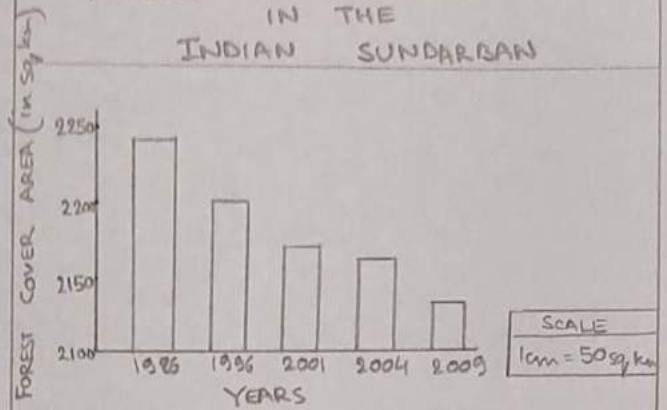 IN THE
INDIAN SUNDARBAN
FOREST COVER AREA (in Sq, km)
2250
2200
2150
2100
1986 1996 2001 2004 2009
YEARS
SCALE
1cm = 50 sq, km